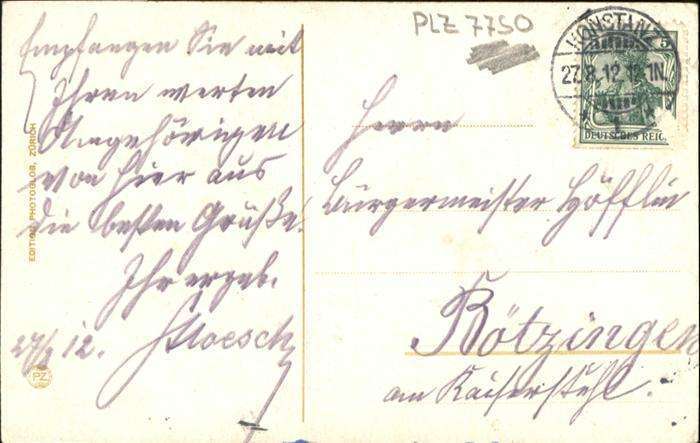 Empfangen Sie mit
Ihren werten
Angehörigen
von hier aus
die besten Grüße.
Ihr ergeb.
27/8 12.
EDITION PHOTOGLOB, ZÜRICH
PZ
PLZ 7750
KONSTANZ
27.8.12.12-1N
5
DEUTSCHES REIC
Herrn
Bürgermeister Höfflin
Bötzingen
am Kaiserstuhl.